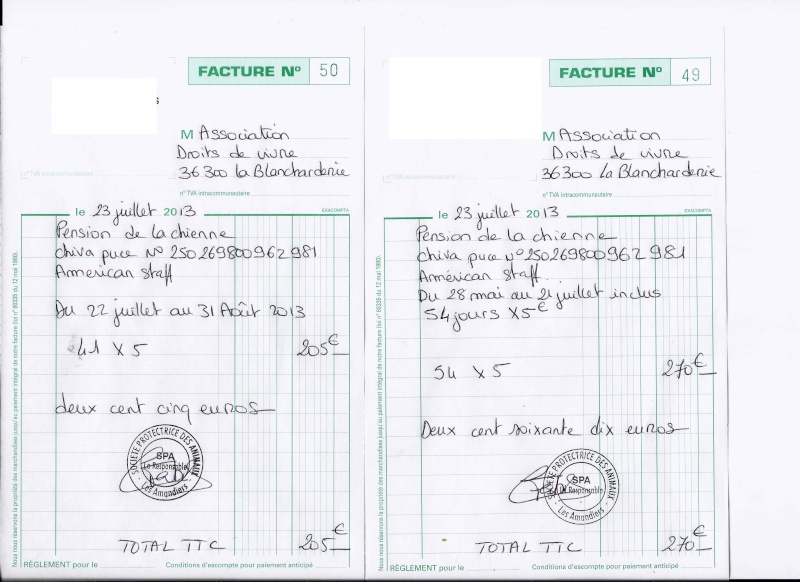 FACTURE N° 50
M Association
Droits de vivre
36300 La Blancharderie
n° TVA intracommunautaire
n° TVA intracommunautaire
le 23 juillet 2013
EXACOMPTA
Pension de la chienne
Chiva puce N° 250269800962981
American Staff
Du 22 juillet au 31 Août 2013
41 X 5 205€
deux cent cinq euros
SOCIÉTÉ PROTECTRICE DES ANIMAUX
SPA
La Responsable
Les Amandiers
TOTAL TTC 205€
RÈGLEMENT pour le
Conditions d'escompte pour paiement anticipé
Nous nous réservons la propriété des marchandises jusqu'au paiement intégral de notre facture (loi n° 80335 du 12 mai 1980).
FACTURE N° 49
M Association
Droits de vivre
36300 La Blancharderie
n° TVA intracommunautaire
n° TVA intracommunautaire
le 23 juillet 2013
EXACOMPTA
Pension de la chienne
Chiva puce N° 250269800962981
Américan Staff
Du 28 mai au 21 juillet inclus
54 jours X 5€
54 X 5 270€
Deux cent soixante dix euros
SOCIÉTÉ PROTECTRICE DES ANIMAUX
SPA
La Responsable
Les Amandiers
TOTAL TTC 270€
RÈGLEMENT pour le
Conditions d'escompte pour paiement anticipé
Nous nous réservons la propriété des marchandises jusqu'au paiement intégral de notre facture (loi n° 80335 du 12 mai 1980).